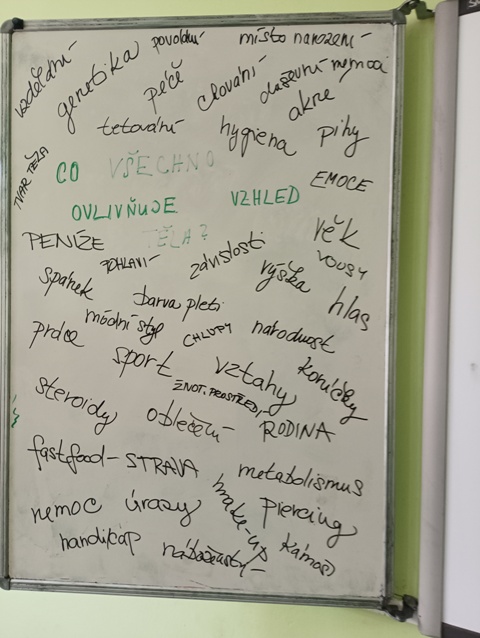 vzdělání genetika povolání místo narození
péče chování duševní nemoci
tetování hygiena akne pihy
TVAR TĚLA
CO VŠECHNO EMOCE
OVLIVŇUJE VZHLED
PENÍZE TĚLA? věk
POHLAVÍ závislosti VOUSY
spánek barva pleti výška hlas
práce módní styl CHLUPY národnost
sport vztahy koníčky
ŽIVOT. PROSTŘEDÍ
steroidy oblečení RODINA
fastfood - STRAVA metabolismus
nemoc úrazy make-up Piercing
handicap náboženství